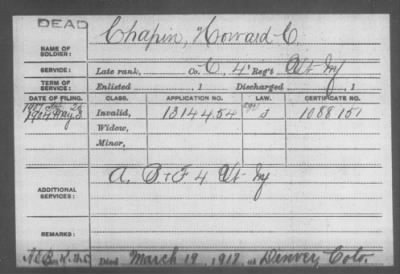 DEAD
Chapin, Howard C.
NAME OF SOLDIER:
SERVICE: Late rank, Co. C, 4 Reg't Vt Inf
TERM OF SERVICE: Enlisted , 1 Discharged , 1
DATE OF FILING. CLASS. APPLICATION NO. LAW. CERTIFICATE NO.
1904 May 3 Invalid, 1314454 1088151
Widow,
Minor,
ADDITIONAL SERVICES: A, B + F 4 Vt Inf
REMARKS:
Died March 19, 1918, at Denver, Colo.